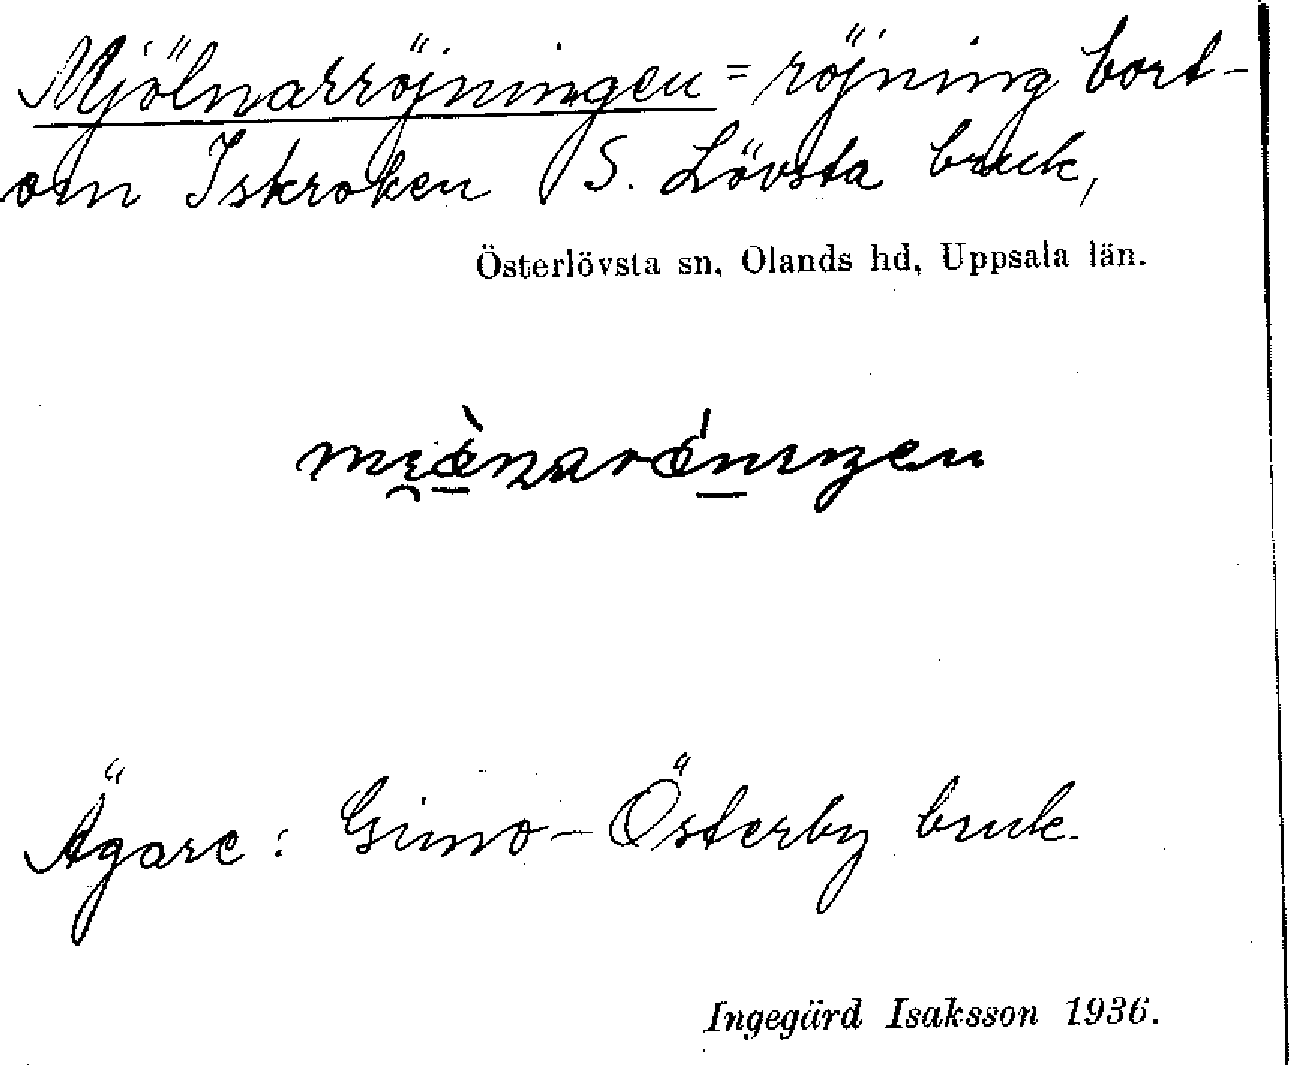 Mjölnarröjningen = röjning bort-
om Iskroken S. Lövsta bruk,
Österlövsta sn, Olands hd, Uppsala län.
Ägare: Gimo-Österby bruk.
Ingegärd Isaksson 1936.